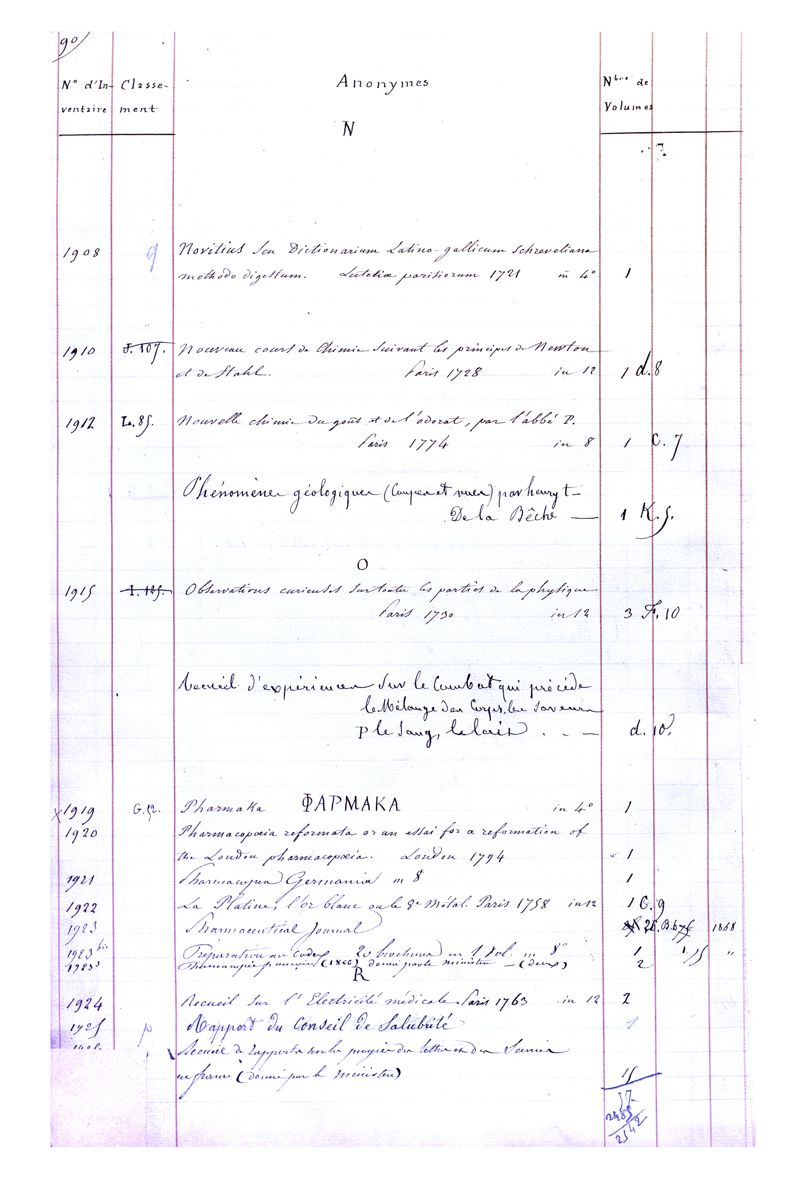 90
N° d'In- Classe- Anonymes Nbre de
ventaire ment Volumes
N
1908 9 Novitius seu Dictionarium Latino-gallicum Schreveliana
methodo digestum. Lutetiæ parisiorum 1721 in 4° 1
1910 J. 107. Nouveau cours de Chimie suivant les principes de Newton
et de Stahl. Paris 1728 in 12 1 d.8
1912 L. 85. Nouvelle chimie du goût et de l'odorat, par l'abbé P.
Paris 1774 in 8 1 C. 7
Phénomènes géologiques (Coupes et vues) par henry t
De la Bêche — 1 K. 5.
O
1915 I. 125. Observations curieuses sur toutes les parties de la physique
Paris 1730 in 12 3 F. 10
Recueil d'expériences sur le Combat qui précède
le Mélange des Corps, les Saveurs
P le Sang, le lait . . — d. 10.
x1919 G. 52. Pharmaka ΦΑΡΜΑΚΑ in 4° 1
1920 Pharmacopœia reformata or an essai for a reformation of
the London pharmacopœia. London 1794 1
1921 Pharmacopea Germania in 8 1
1922 La Platine, l'or blanc ou le 8e Métal. Paris 1758 in 12 1 C. 9
1923 Pharmaceutical Journal 26. B.b 1868
1923 bis Préparation au Codex 20 brochures in 1 Vol. in 8° 1 1 15 "
1923 (1866) donné par le ministère — (deux) 2
R
1924 Recueil sur l'Electricité médicale Paris 1763 in 12 2
1925 p Rapport du Conseil de Salubrité 1
Recueil de rapports sur les progrès des lettres et des Sciences
en france (donné par le ministère) 15
57
2485
2542